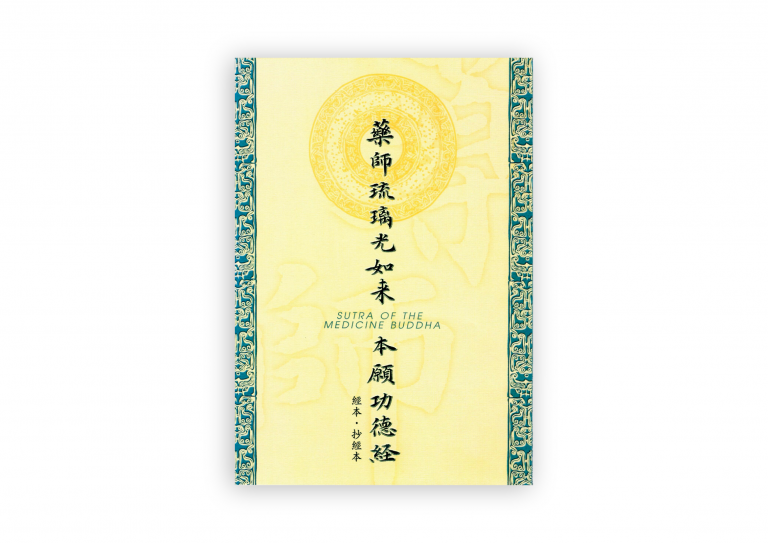 藥師琉璃光如来
SUTRA OF THE
MEDICINE BUDDHA
本願功德経
經本・抄經本